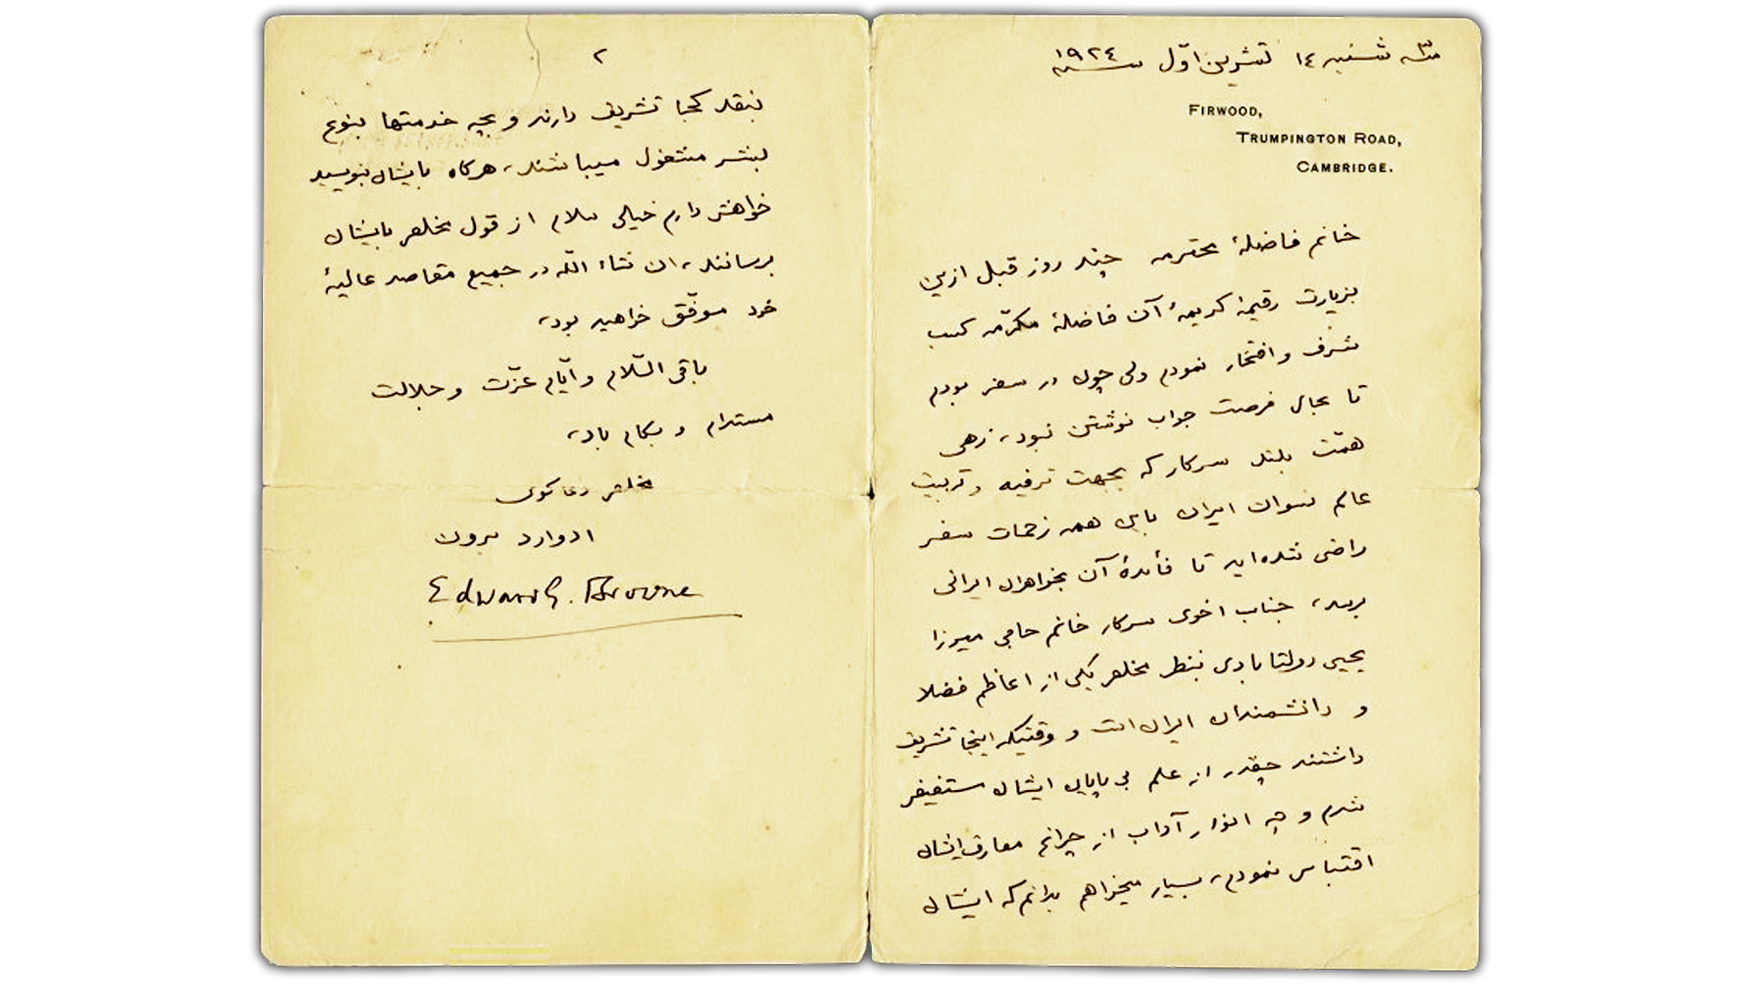 سه شنبه ١٤ تشرین اوّل سنه ١٩٢٤
FIRWOOD,
TRUMPINGTON ROAD,
CAMBRIDGE.
خانم فاضلهٔ محترمه چند روز قبل ازین
بزیارت رقیمهٔ کریمهٔ آن فاضلهٔ مکرّمه کسب
شرف و افتخار نمودم ولی چون در سفر بودم
تا بحال فرصت جواب نوشتن نبود، زهی
همّت بلند سرکار که بجهت ترفیه و تربیت
عالم نسوان ایران باین همه زحمات سفر
راضی شده اید تا فائدهٔ آن بخواهران ایرانی
برسد، جناب اخوی سرکار خانم حاجی میرزا
یحیی دولتابادی بنظر مخلص یکی از اعاظم فضلا
و دانشمندان ایران است و وقتیکه اینجا تشریف
داشتند چقدر از علم بی پایان ایشان مستفیض
شدم و چه انوار آداب از چراغ معارف ایشان
اقتباس نمودم، بسیار میخواهم بدانم که ایشان
٢
بنقد کجا تشریف دارند و بچه خدمتها بنوع
بشر مشغول میباشند، هرگاه بایشان بنویسید
خواهش دارم خیلی سلام از قول مخلص بایشان
برسانند، ان شاء الله در جمیع مقاصد عالیهٔ
خود موفّق خواهید بود،
باقی السّلام و ایّام عزّت و جلالت
مستدام و بکام باد،
مخلص دعا گوی
ادوارد برون
Edward G. Browne